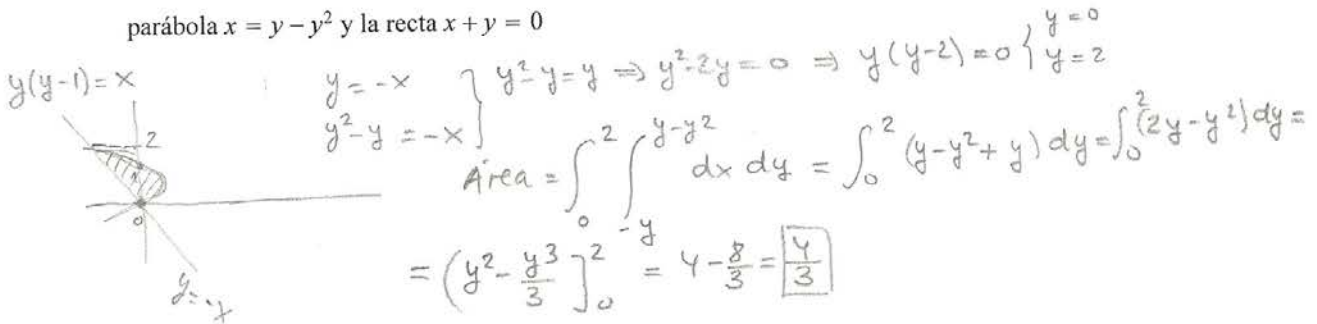 parábola x = y − y² y la recta x + y = 0
y(y-1) = x
y = -x
y² - y = -x } y² - y = y ⇒ y² - 2y = 0 ⇒ y(y-2) = 0 { y = 0
y = 2
2
1
0
y = -x
Área = ∫₀² ∫₋y^(y-y²) dx dy = ∫₀² (y - y² + y) dy = ∫₀² (2y - y²) dy =
= (y² - y³/3]₀² = 4 - 8/3 = 4/3